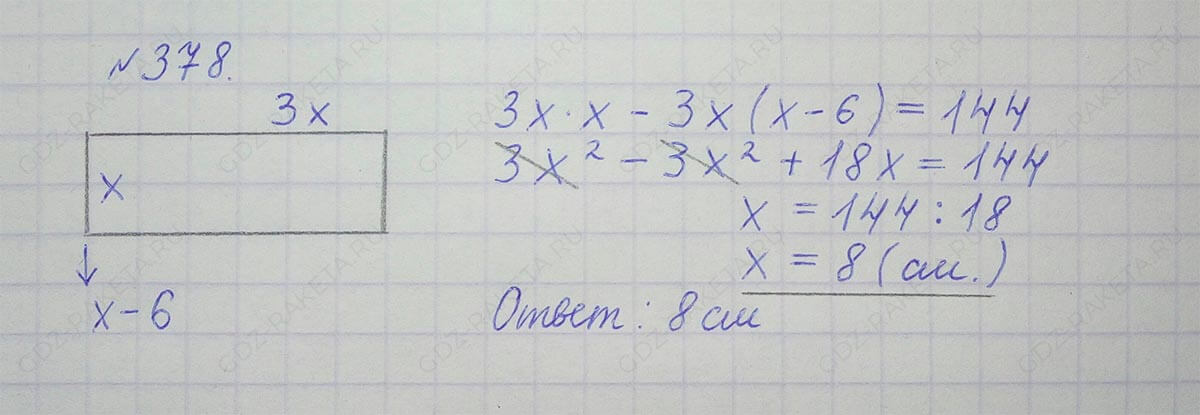 №378.
3x
x
↓
x-6
3x·x - 3x(x-6)=144
3x² - 3x² + 18x = 144
x = 144:18
x = 8 (см.)
Ответ: 8 см
GDZ-RAKETA.RU